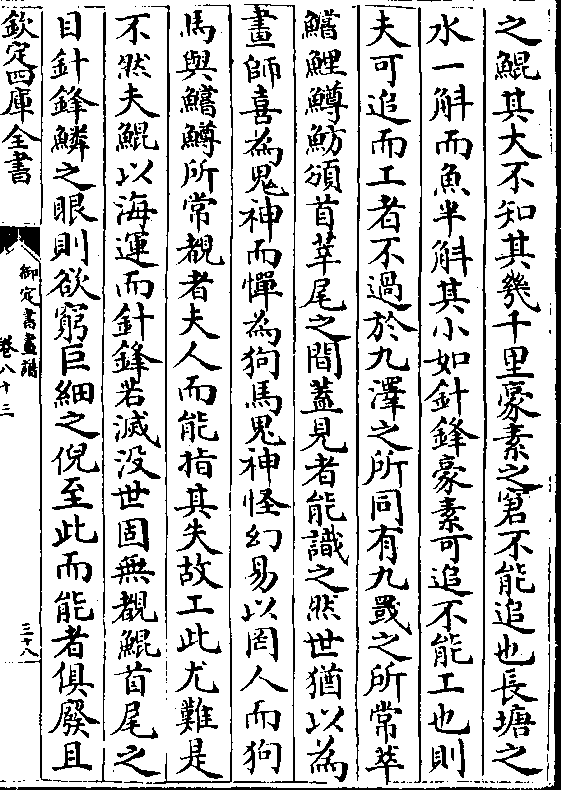 之鯤其大不知其幾千里豪素之窘不能追也長塘之
水一斛而魚半斛其小如針鋒豪素可追不能工也則
夫可追而工者不過於九澤之所同有九罭之所常萃
鱨鯉鱒魴頒首莘尾之間葢見者能識之然世猶以為
畫師喜為鬼神而憚為狗馬鬼神怪幻易以罔人而狗
馬與鱨鱒所常覩者夫人而能指其失故工此尤難是
不然夫鯤以海運而針鋒若滅没世固無覩鯤首尾之
目針鋒鱗之眼則欲窮巨細之倪至此而能者俱廢且
欽定四庫全書
御定書畫譜
卷八十三
三十八